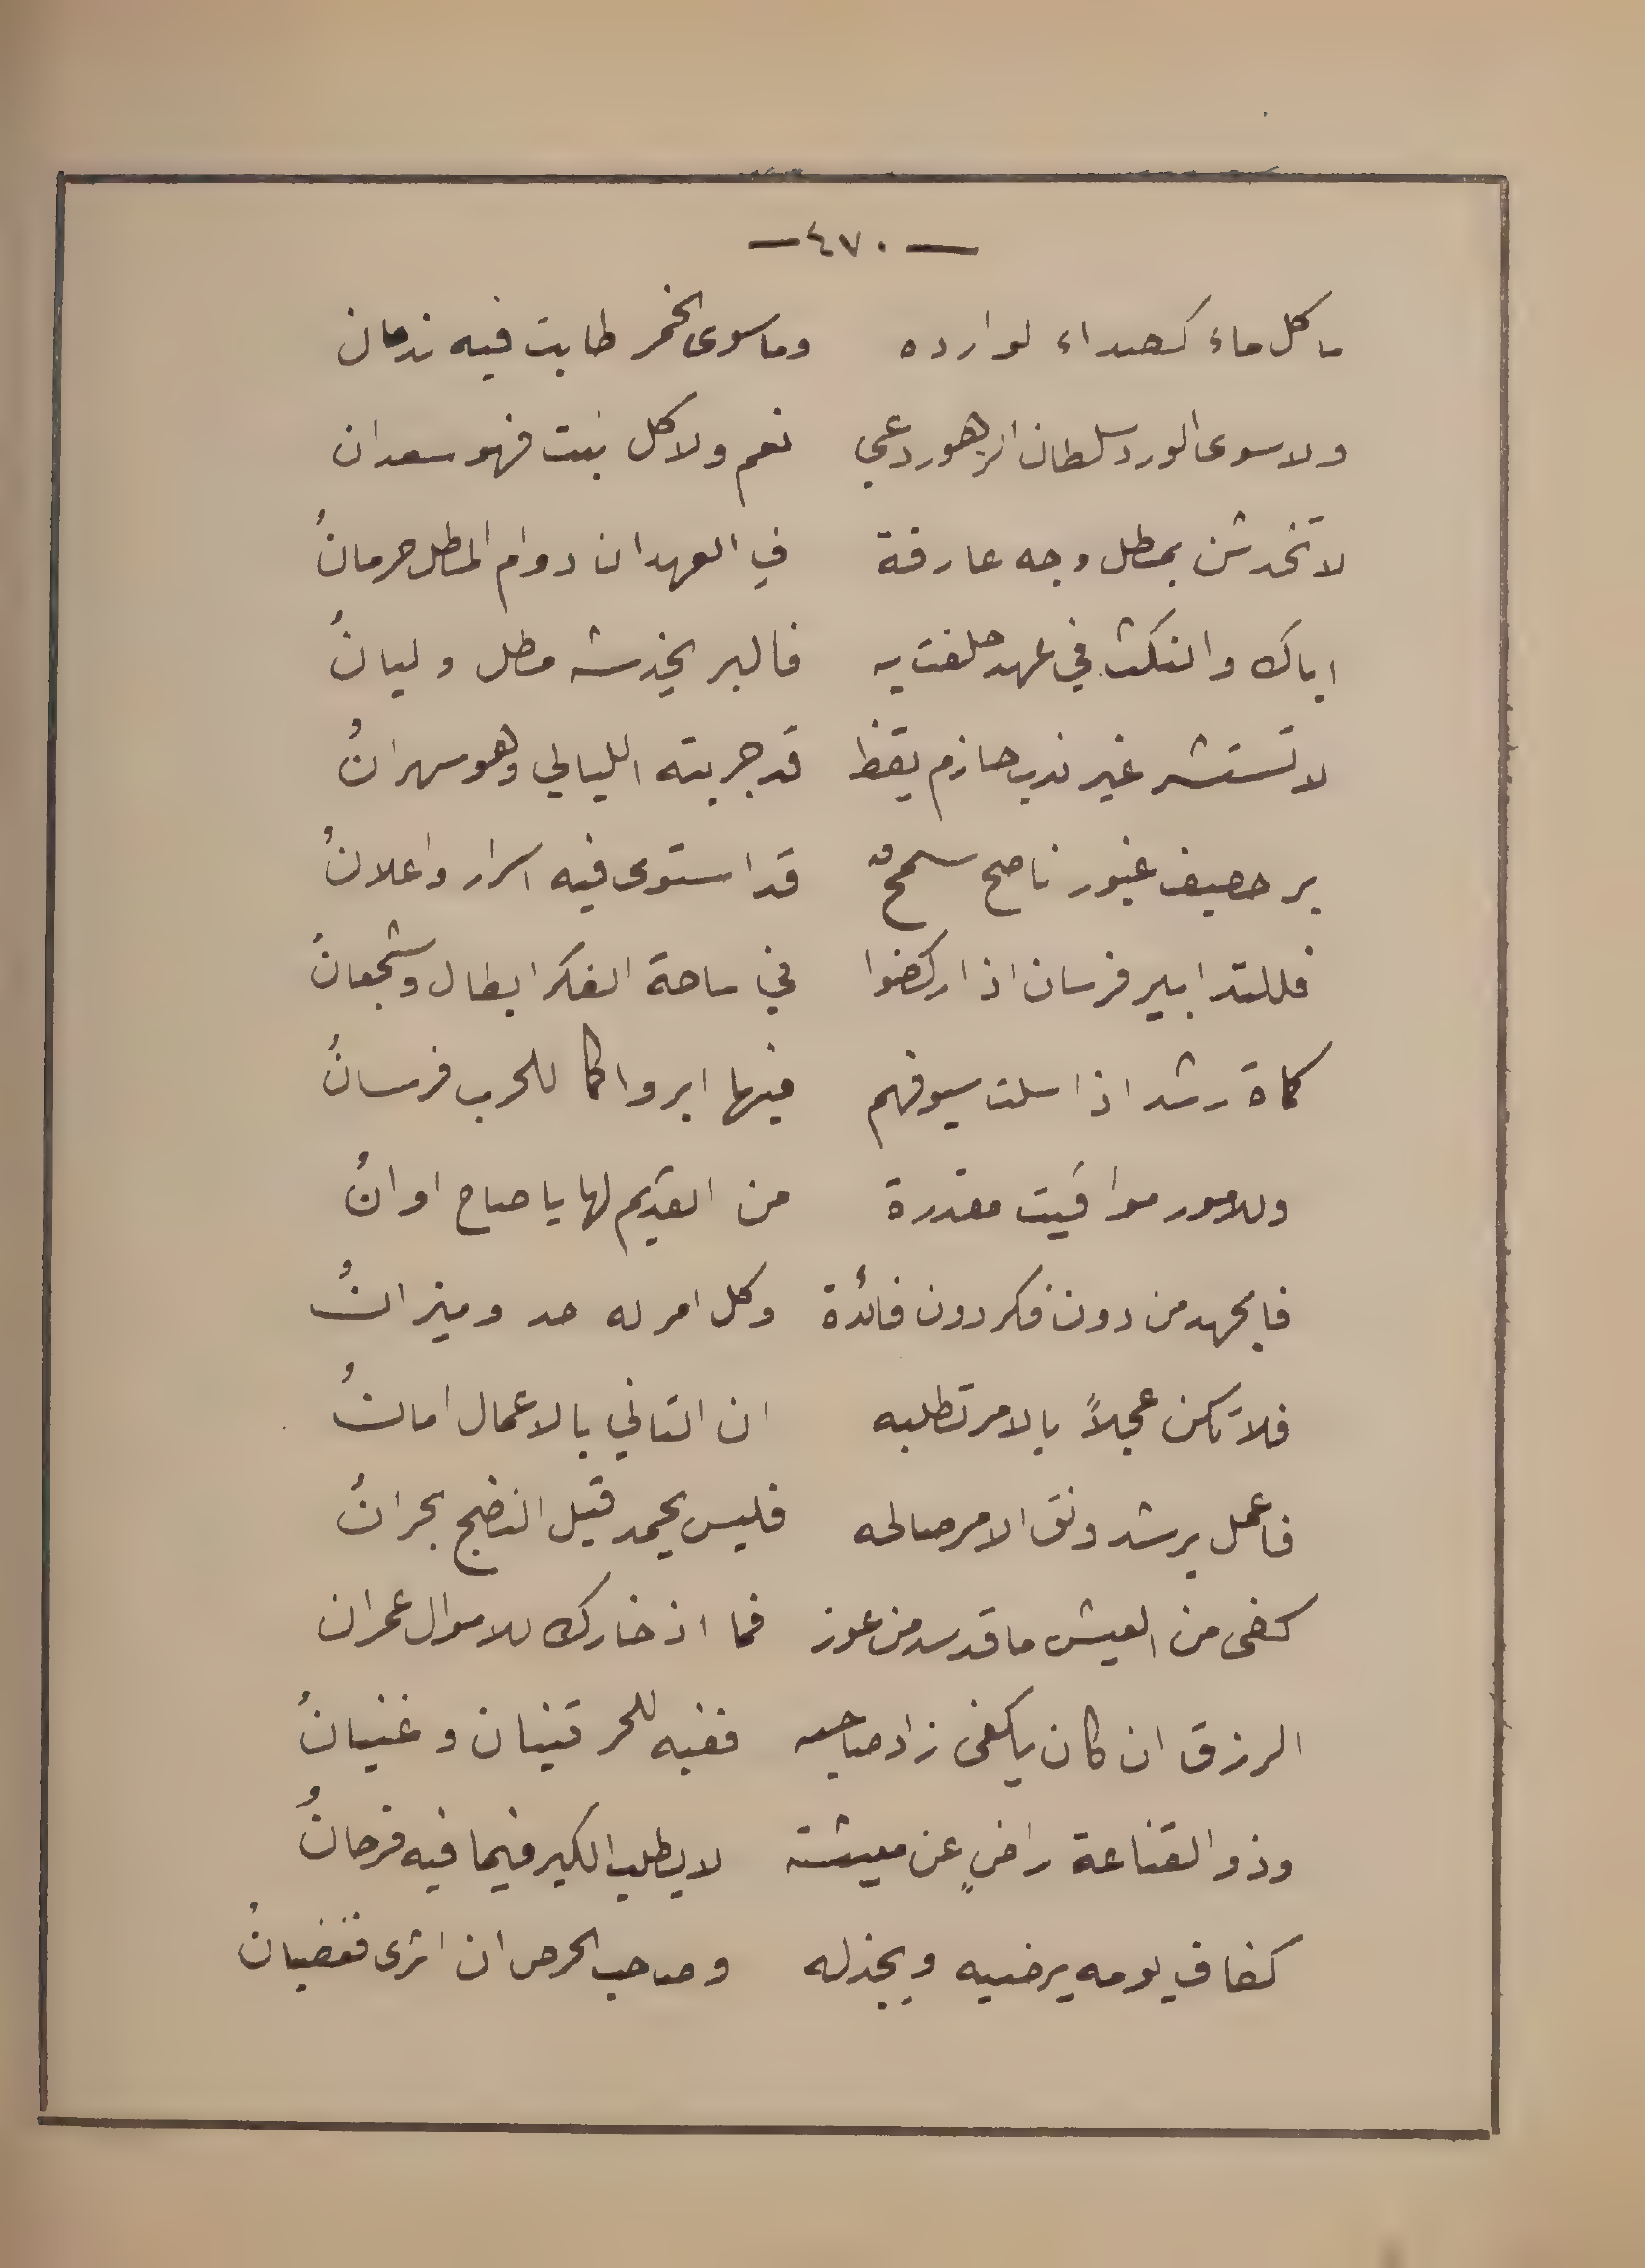 —٤٧٠—
ما كل ماء كصداء لوارده وما سوى الخمر طابت فيه ندمان
ولا سوى الورد سلطان الزهور دعي نعم ولا كل نبت فهو سعدان
لا تخدشن بمطل وجه عارفة في العهد ان دوام المطل حرمانُ
اياك والنكث في عهد حلفت به فالبر يخدشه مطل وليانُ
لا تستشر غير ندب حازم يقظ قد جربته الليالي وهو سهرانُ
بر حصيف غيور ناصح سمح قد استوى فيه اسرار واعلانُ
فللتدابير فرسان اذا ركضوا في ساحة الفكر ابطال وشجعانُ
كماة رشد اذا سلت سيوفهم فيها ابروا كما للحرب فرسانُ
وللامور مواقيت مقدرة من القديم لها يا صاح اوانُ
فالجهد من دون فكر دون فائدة وكل امر له حد وميزانُ
فلا تكن عجلاً بالامر تطلبه ان التاني بالاعمال امانُ
فاعمل برشد ونق الامر صالحه فليس يحمد قبل النضج بحرانُ
كفى من العيش ما قد سد من عوز فما اذخارك للاموال عمران
الرزق ان كان يكفي زاد صاحبه ففيه للحر قنيان وغنيانُ
وذو القناعة راضٍ عن معيشته لا يطلب الكبر فيما فيه فرحانُ
كفاف يومه يرضيه ويجذله وصاحب الحرص ان اثرى فغضبانُ